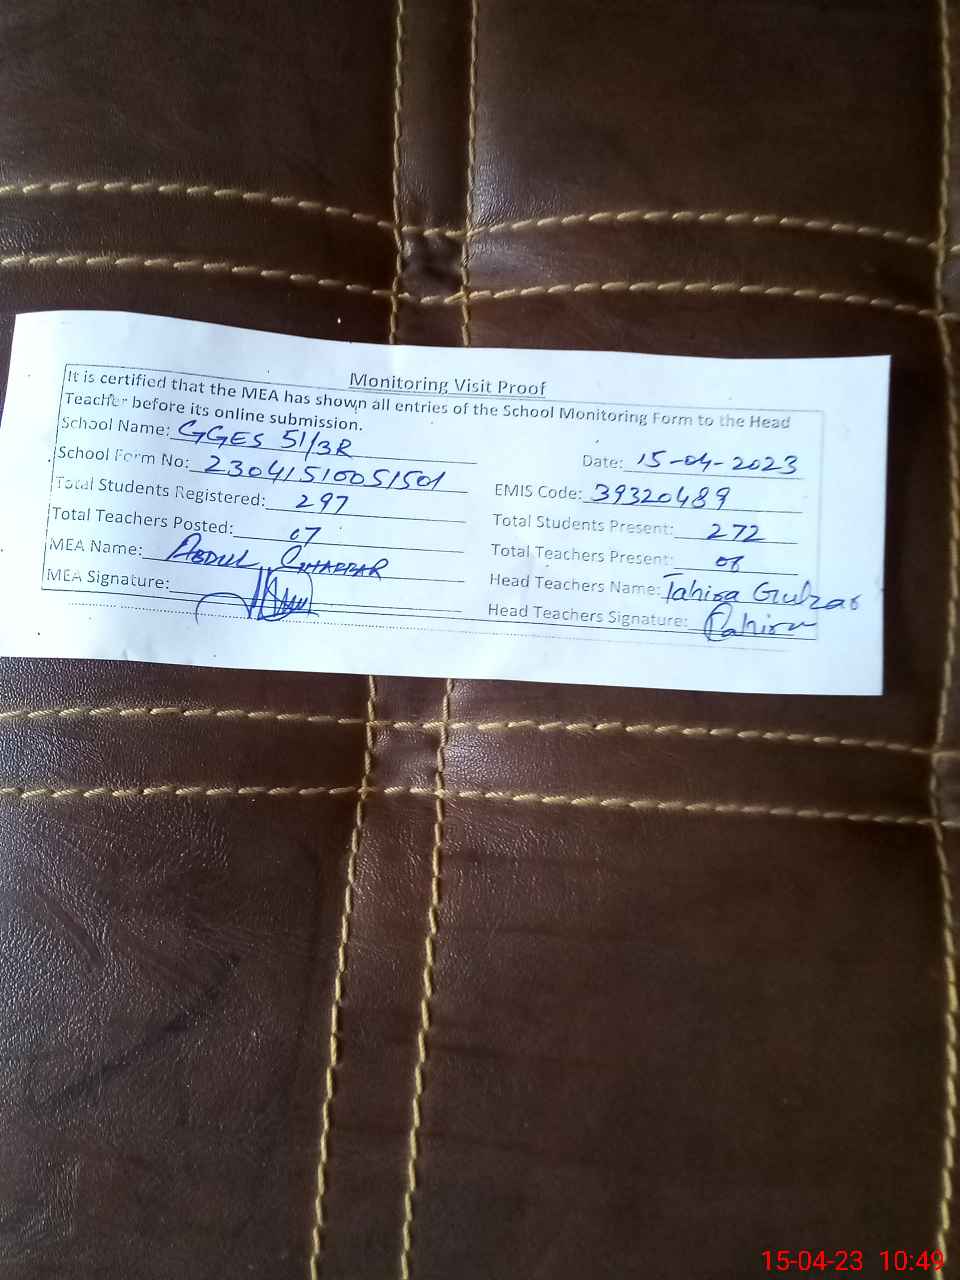 Monitoring Visit Proof
It is certified that the MEA has shown all entries of the School Monitoring Form to the Head
Teacher before its online submission.
School Name: GGES 51/3R
Date: 15-04-2023
School Form No: 23041510051501
EMIS Code: 39320489
Total Students Registered: 297
Total Students Present: 272
Total Teachers Posted: 07
Total Teachers Present: 06
MEA Name: ABDUL GHAFFAR
Head Teachers Name: Tahira Gulzar
MEA Signature:
Head Teachers Signature: Tahira
15-04-23 10:49